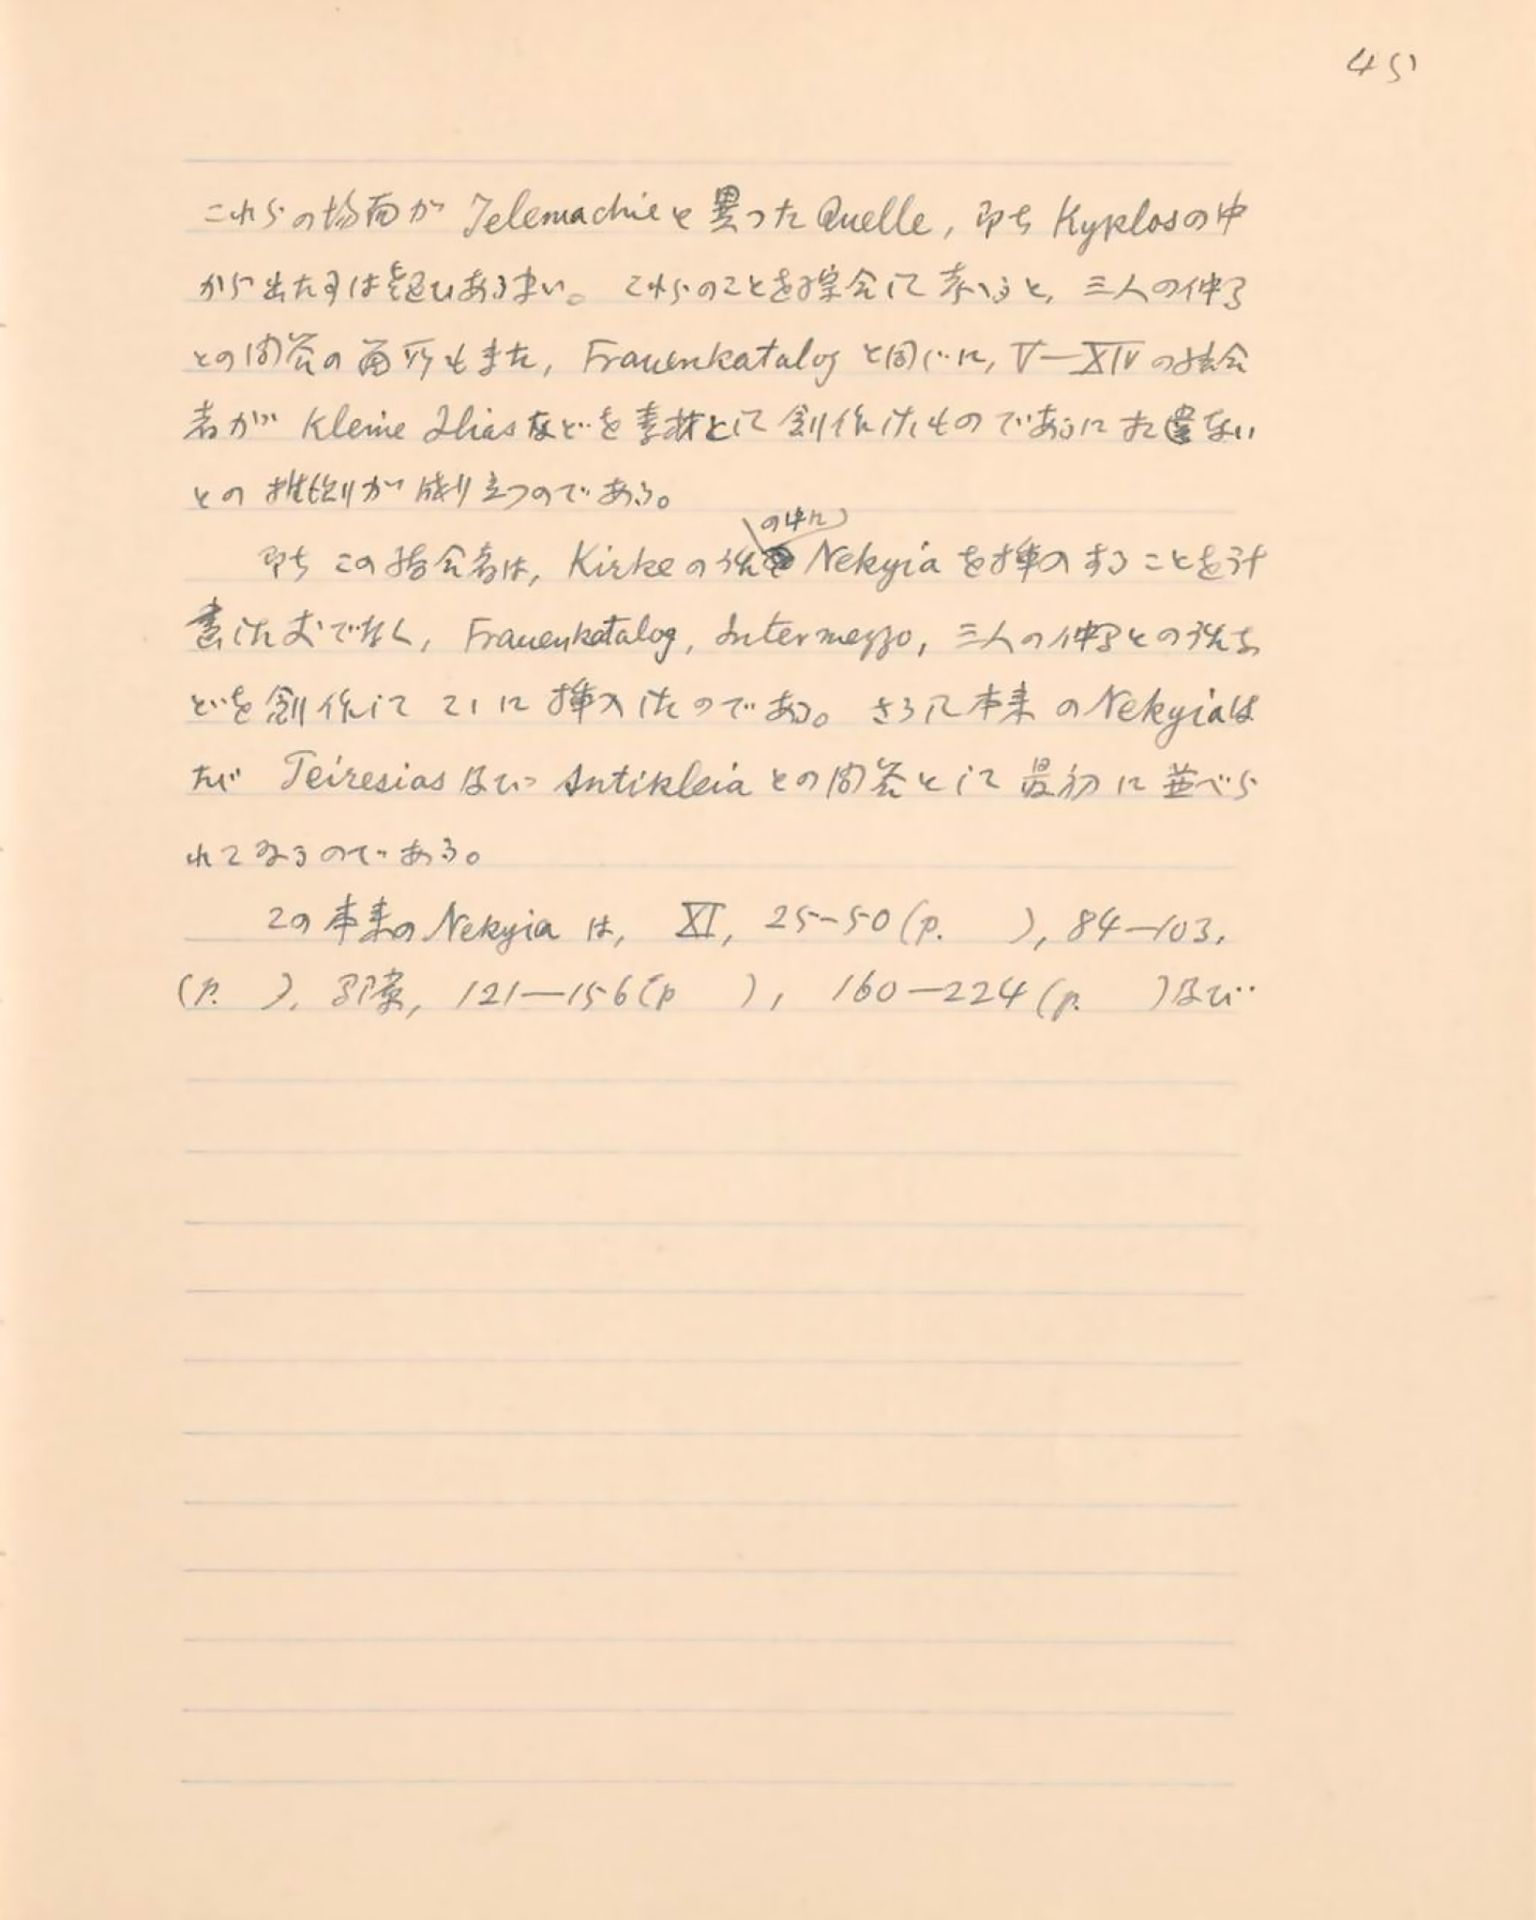 45
これらの場面が Telemachie と異った Quelle, 即ち Kyklos の中
から出た事は疑ひあるまい。これらのことを綜合して考へると、三人の仲間
との問答の箇所もまた, Frauenkatalog と同じに, V—XIV の結合
者が Kleine Ilias などを素材として創作したものであるに相違ない
との推測が成り立つのである。
の中に
即ちこの結合者は, Kirke の話 Nekyia を挿入することを計
画しただけでなく, Frauenkatalog, Intermezzo, 三人の仲間との話な
どを創作してここに挿入したのである。さうして本来の Nekyia は
ただ Teiresias 及び Antikleia との問答として最初に並べら
れてゐるのである。
この本来の Nekyia は, XI, 25-50 (p. ), 84—103,
(p. ), 121—156 (p ), 160—224 (p. ) 及び